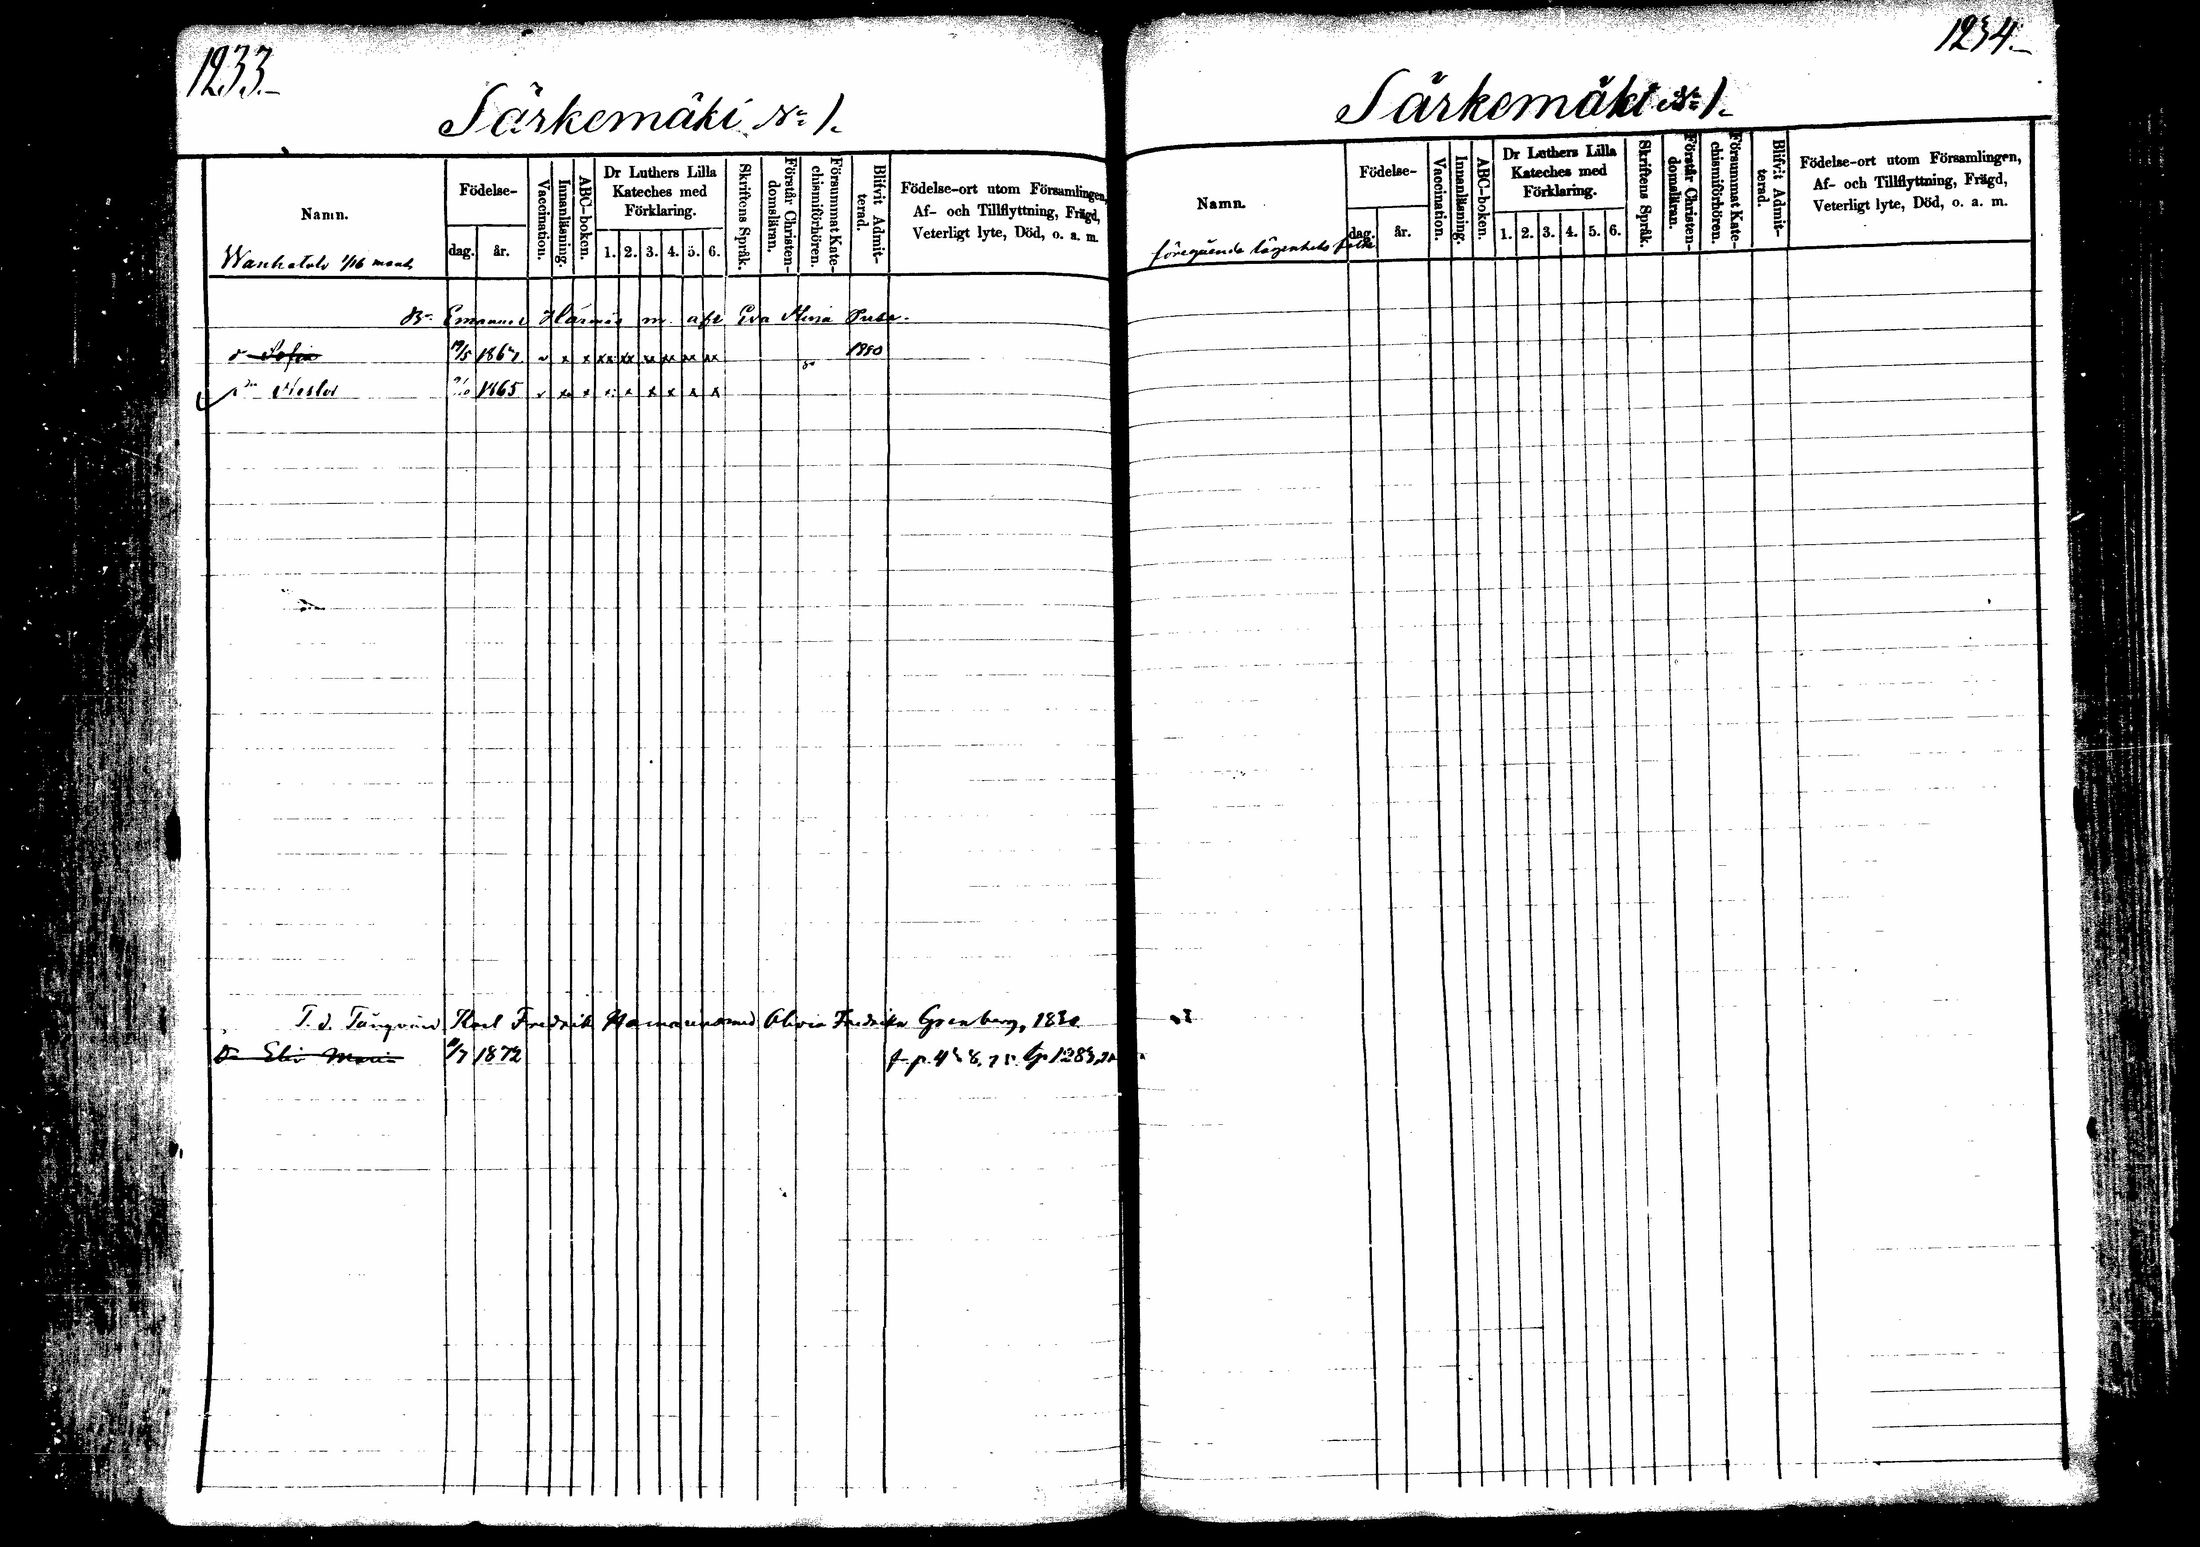 1233.
Särkemäki No 1.
Namn.
Födelse-
dag.
år.
Vaccination.
Innanläsning.
ABC-boken.
Dr Luthers Lilla
Kateches med
Förklaring.
1. 2. 3. 4. 5. 6.
Skriftens Språk.
Förstår Christen-
domsläran.
Försummat Kate-
chismiförhören.
Blifvit Admit-
terad.
Födelse-ort utom Församlingen,
Af- och Tillflyttning, Frägd,
Veterligt lyte, Död, o. a. m.
Wanhatalo 1/16 mant.
Emanuel m. afl Eva
d Sofia 19/5 186 v x x xx xx xx xx xx xx 1880
Nestor 1865 v x x x x x x x x
T. d. Karl Fredrik med Olivia Fredrika Grenberg, 1880
D. Maria /7 1872
1234.
Särkemäki No 1.
Namn.
Födelse-
dag.
år.
Vaccination.
Innanläsning.
ABC-boken.
Dr Luthers Lilla
Kateches med
Förklaring.
1. 2. 3. 4. 5. 6.
Skriftens Språk.
Förstår Christen-
domsläran.
Försummat Kate-
chismiförhören.
Blifvit Admit-
terad.
Födelse-ort utom Församlingen,
Af- och Tillflyttning, Frägd,
Veterligt lyte, Död, o. a. m.
föregående lägenhets folk